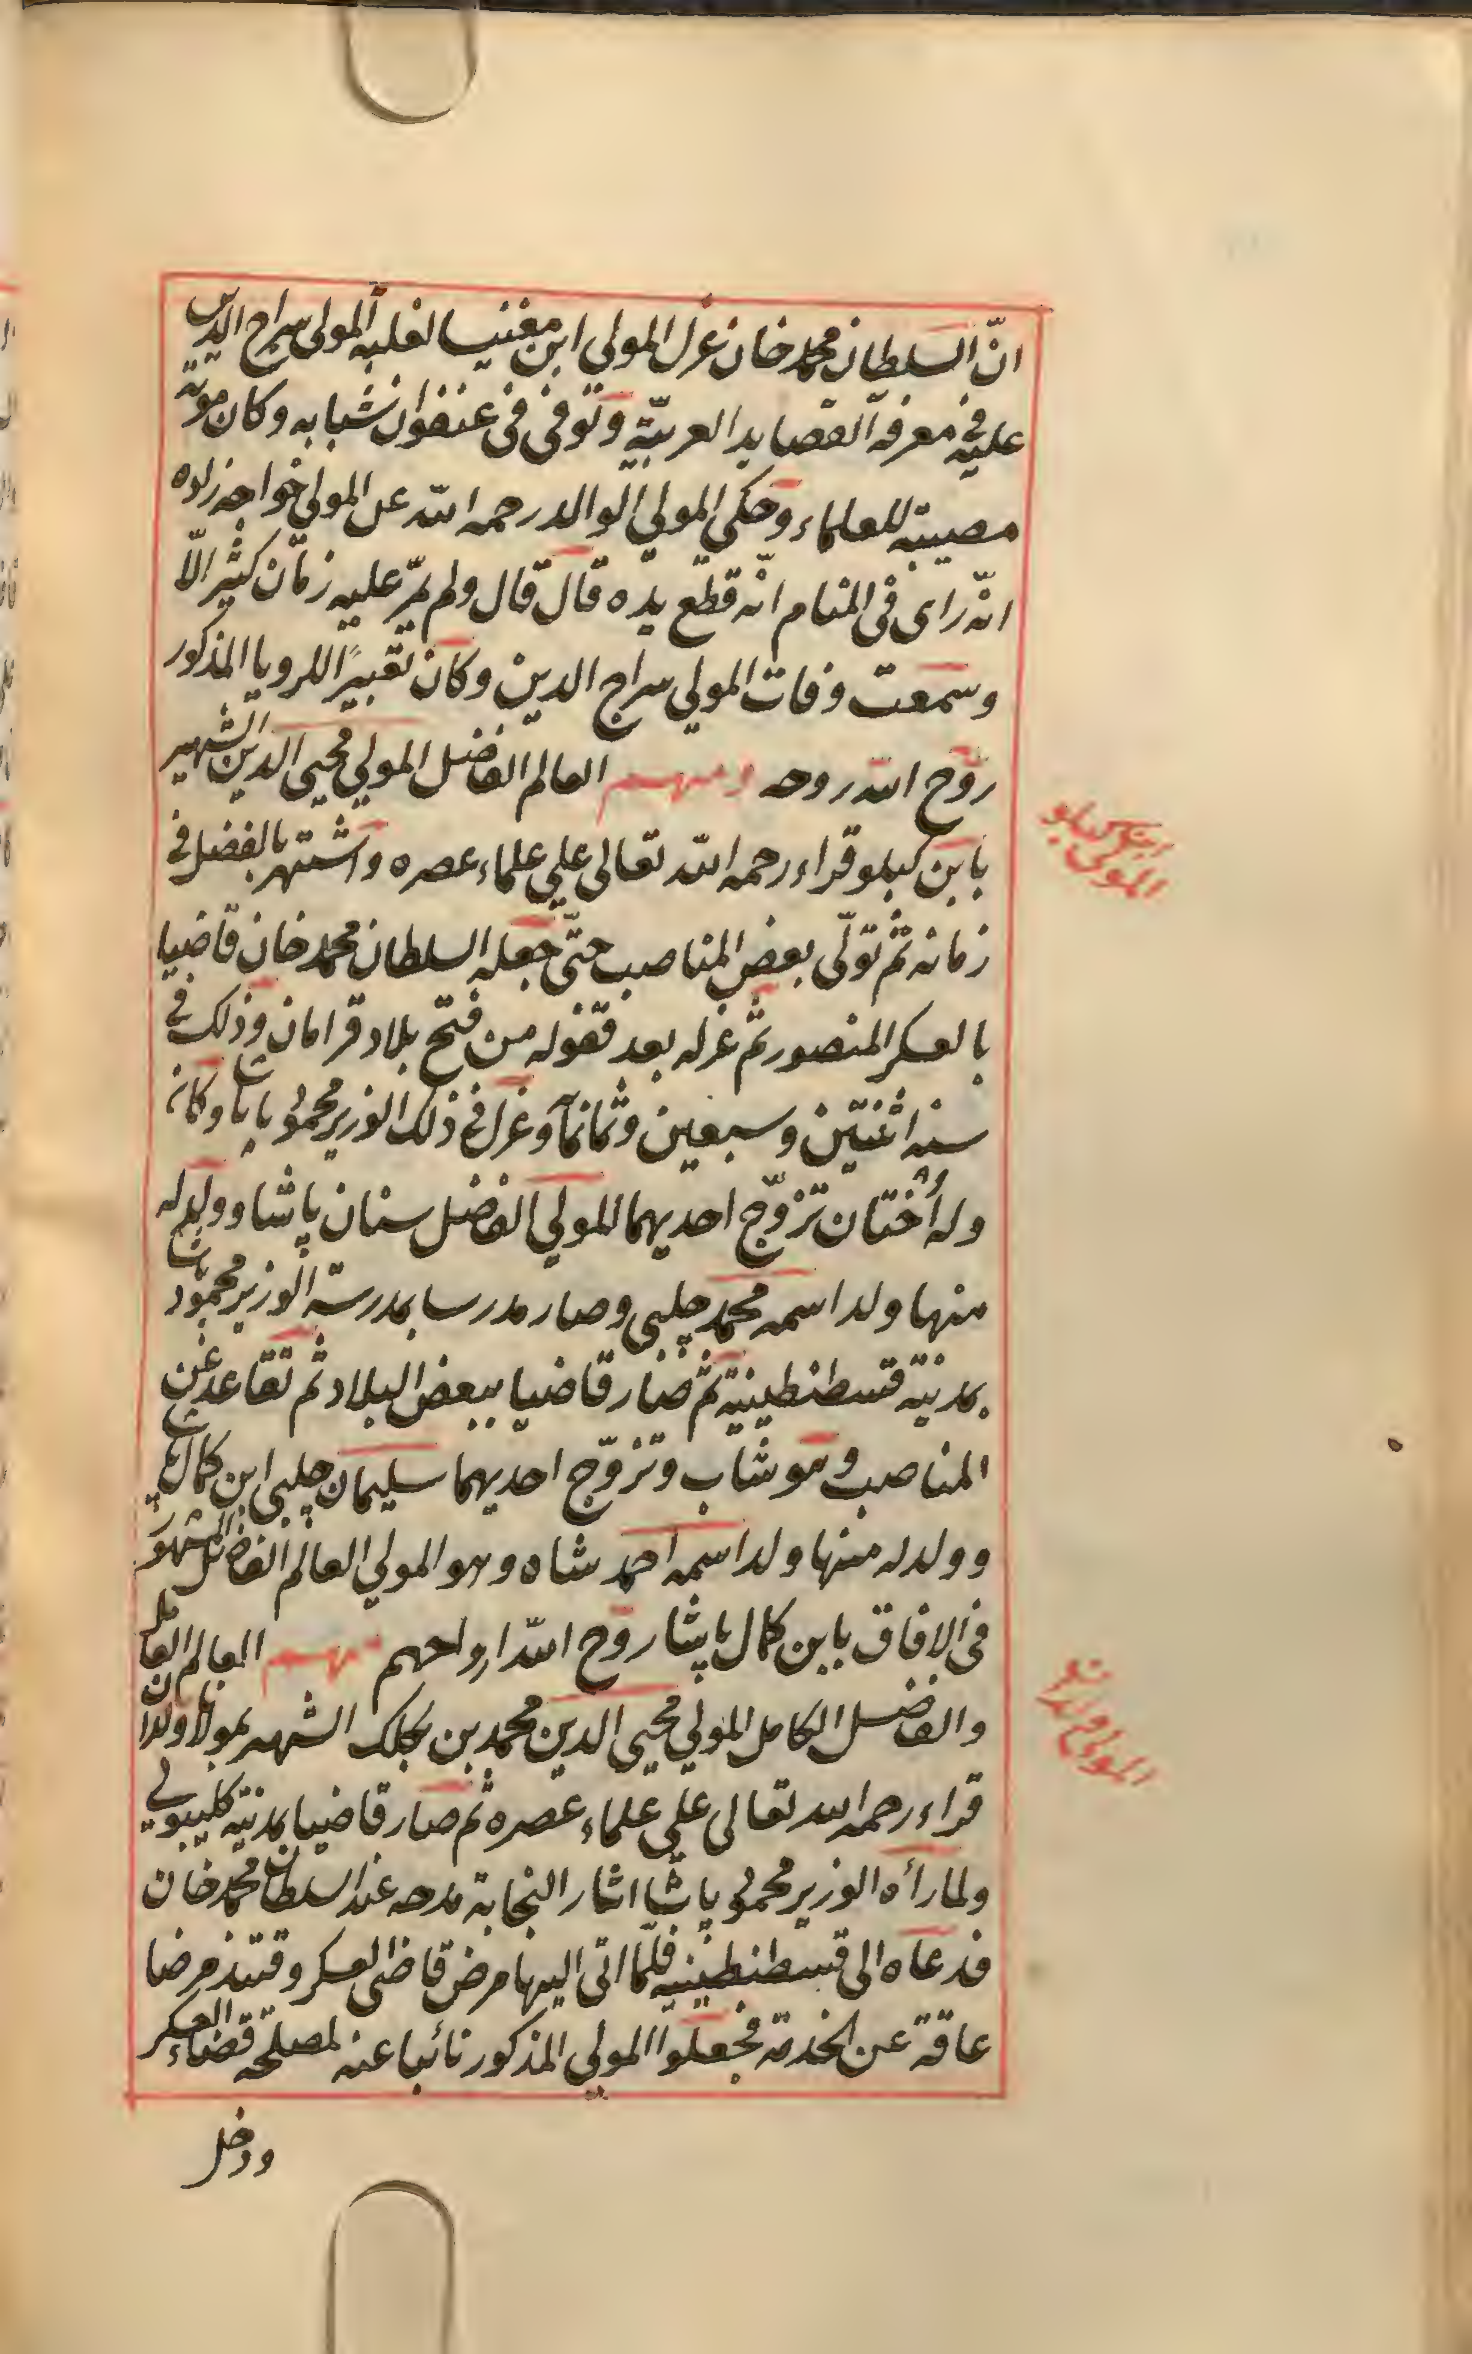 انّ السلطان محمد خان عزل المولى ابن مغنيسا لغلبه المولى سراج الدين
عليه فى معرفة القصايد العربيّة وتوفى فى عنفوان شبابه وكان موته
مصيبة للعلماء وحكى المولى الوالد رحمه الله عن المولى خواجه زاده
انّه راى فى المنام انّه قطع يده قال قال ولم يمرّ عليه زمان كثير الّا
وسمعت وفات المولى سراج الدين وكان تعبيرًا للرويا المذكور
روّح الله روحه ومنهم العالم الفاضل المولى محيى الدين الشهير
بابن كبلو قراء رحمه الله تعالى على علماء عصره واشتهر بالفضل فى
زمانه ثم تولّى بعض المناصب حتّى جعله السلطان محمد خان قاضيا
بالعسكر المنصور ثم عزله بعد قفوله من فتح بلاد قرامان وذلك فى
سنه اثنتين وسبعين وثمانمائه وعزل فى ذلك الوزير محمود پاشا وكان
وله أختان تزوّج احديهما المولى الفاضل سنان پاشا وولد له
منها ولد اسمه محمد چلبى وصار مدرسا بمدرسة الوزير محمود پاشا
بمدينة قسطنطينية ثم صار قاضيا ببعض البلاد ثم تقاعد عن
المناصب وهو شاب وتزوّج احديهما سليمان چلبى ابن كمال پاشا
وولد له منها ولد اسمه احمد شاه وهو المولى العالم الفاضل المشهور
فى الافاق بابن كمال پاشا روح الله ارواحهم ومنهم العالم العامل
والفاضل الكامل المولى محيى الدين محمد بن كجلك الشهير بمولانا ولدان
قراء رحمه الله تعالى على علماء عصره ثم صار قاضيا بمدينة كليبولى
ولما رأه الوزير محمود پاشا اثار النجابة مدحه عند السلطان محمد خان
فدعاه الى قسطنطينيه فلمّا اتى اليها مرض قاضى العسكر وقتئذ مرضا
عاقة عن الخدمة فجعلوا المولى المذكور نائبا عنه لمصلحة قضاء العسكر
ودخل
ابن كبلو
المولى
المولى ولدان